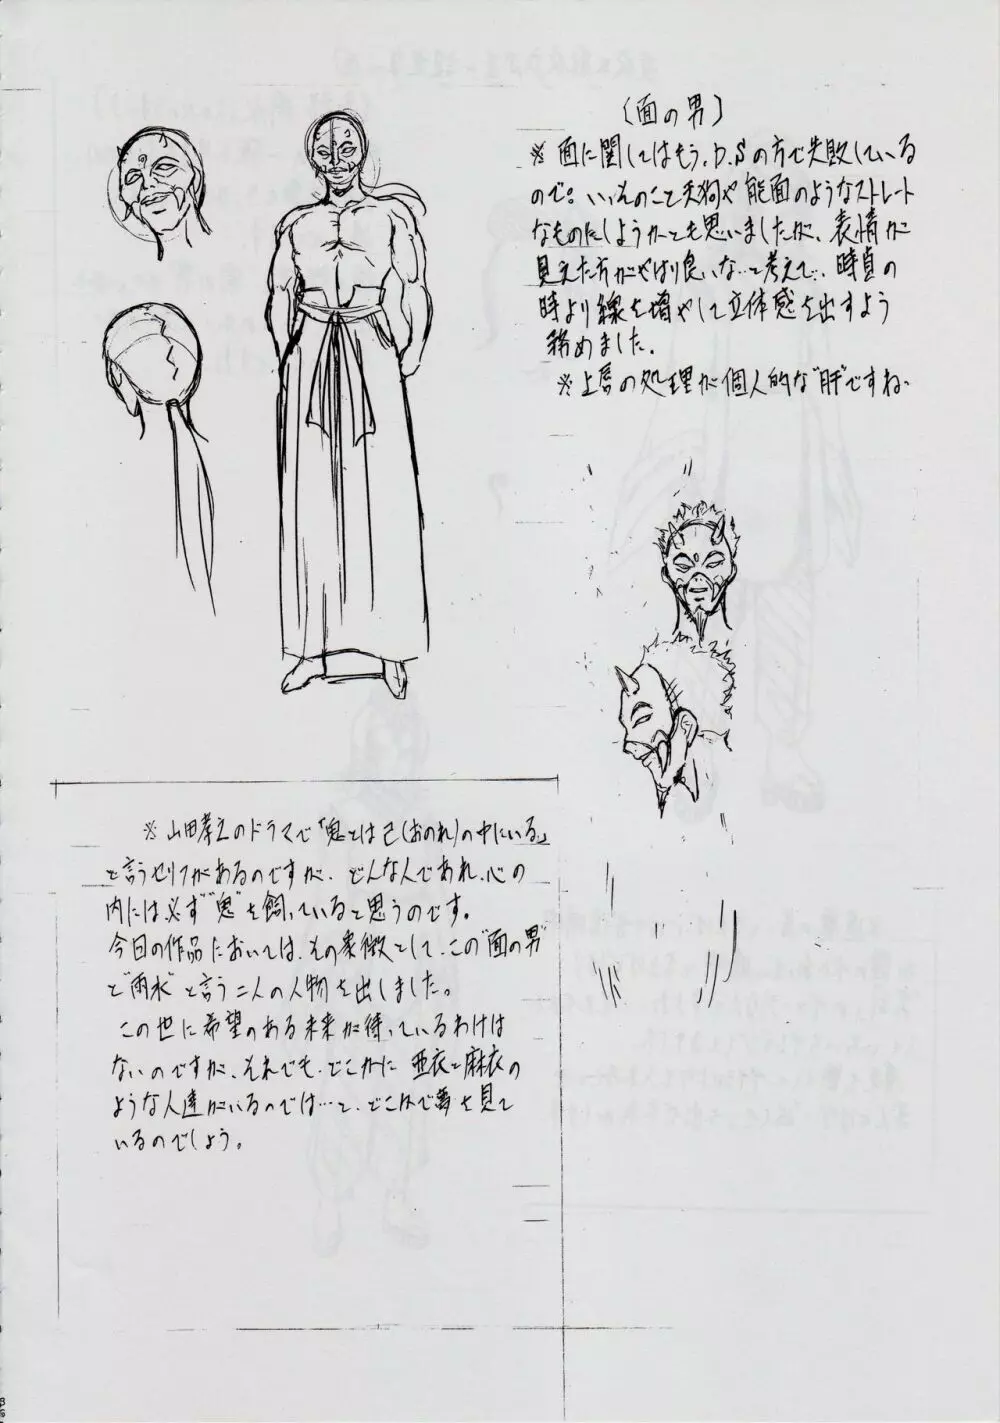 (面の男)
※ 面に関してはもう、D.Sの方で失敗している
ので。いっそのこと天狗や能面のようなストレート
なものにしようかとも思いましたが、表情が
見えた方がやはり良いな…と考えて、時貞の
時より線を増やして立体感を出すよう
務めました。
※上唇の処理が個人的な"肝"ですね。
※山田孝之のドラマで「鬼とは己(おのれ)の中にいる」
と言うセリフがあるのですが、どんな人であれ、心の
内には必ず"鬼"を飼っていると思うのです。
今回の作品においては、その象徴として、この"面の男"
と"雨水"と言う二人の人物を出しました。
この世に希望のある未来が待っているわけは
ないのですが、それでも、どこかに亜衣と麻衣の
ような人達がいるのでは…と、どこかで夢を見て
いるのでしょう。